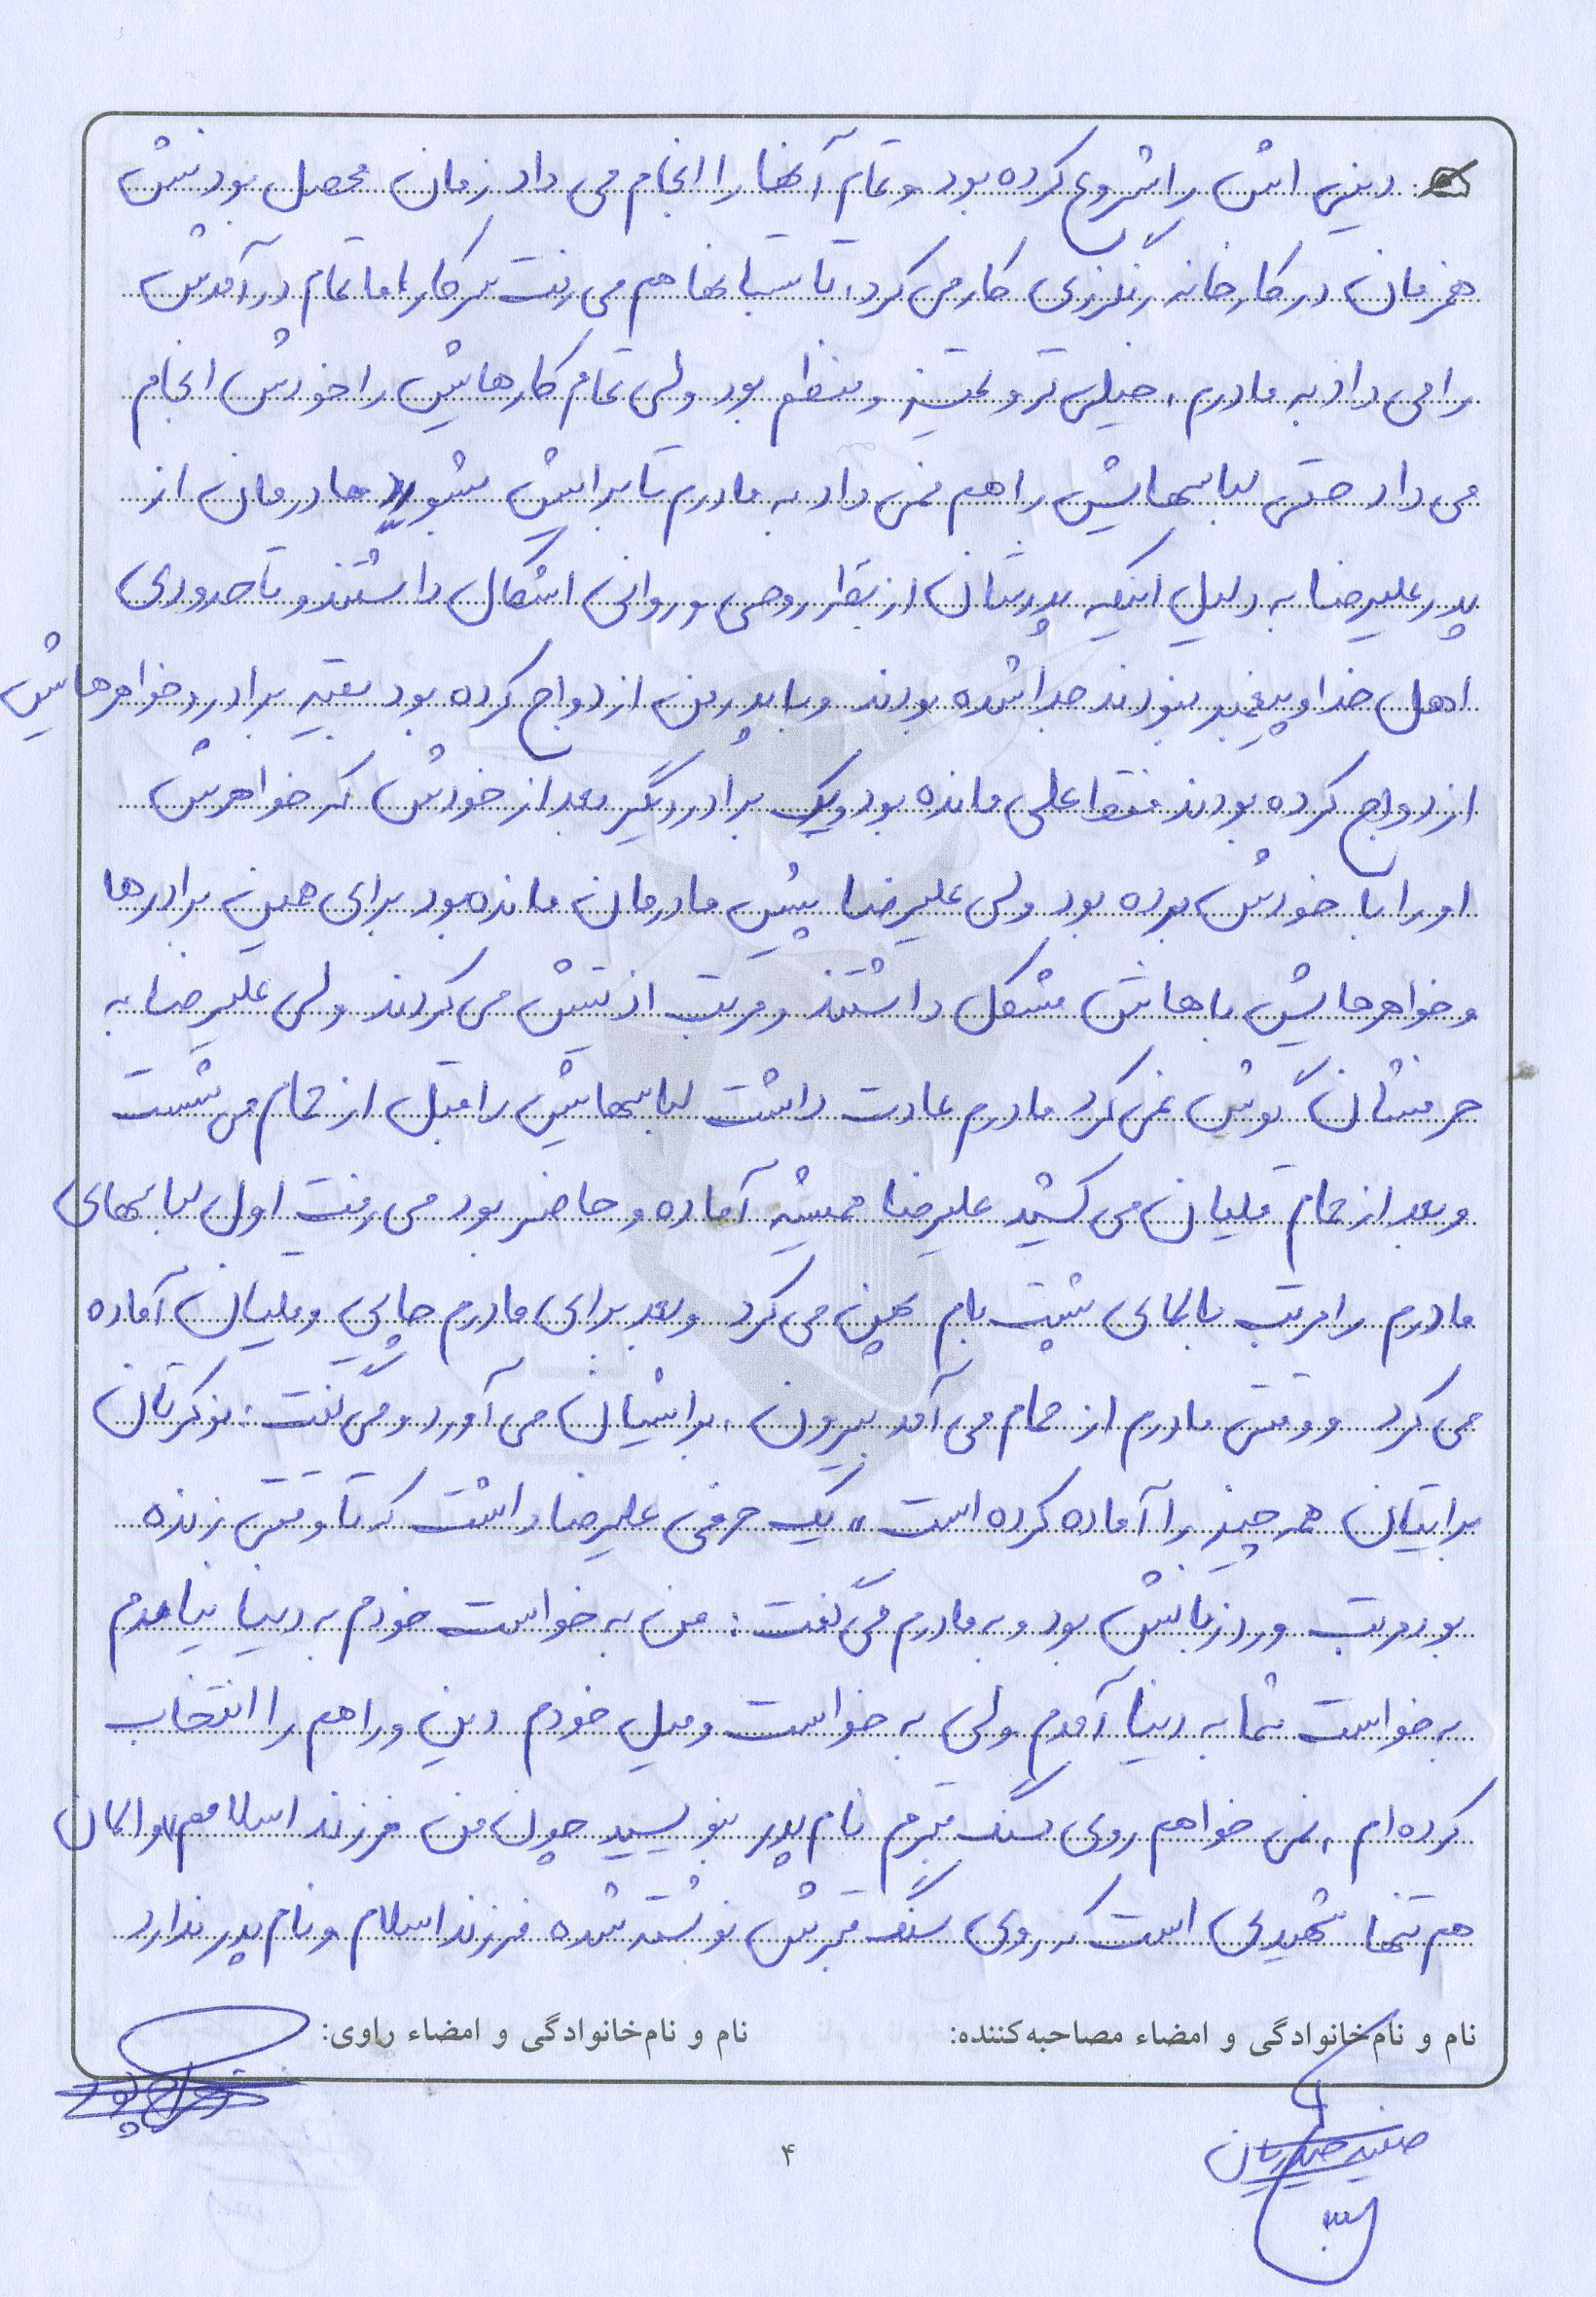 دینی اش را شروع کرده بود و تمام آنها را انجام می داد زمان محصل بودنش
همزمان در کارخانه رنگرزی کار می کرد، تابستانها هم می رفت سر کار، اما تمام درآمدش
را می داد به مادرم، خیلی تر و تمیز و منظم بود ولی تمام کارهایش را خودش انجام
می داد حتی لباسهایش را هم نمی داد به مادرم تا برایش بشورد مادرمان از
پدر علیرضا به دلیل اینکه پدرشان از نظر روحی و روانی اشکال داشتند و تا حدودی
اهل خدا و پیغمبر نبودند جدا شده بودند و با پدر من ازدواج کرده بود بقیه برادر و خواهرهایش
ازدواج کرده بودند فقط علی مانده بود و یک برادر دیگر بعد از خودش که خواهرش
او را با خودش برده بود ولی علیرضا پیش مادرمان مانده بود برای همین برادرها
و خواهرهایش باهاش مشکل داشتند و مرتب اذیتش می کردند ولی علیرضا به
حرفشان گوش نمی کرد مادرم عادت داشت لباسهایش را قبل از حمام می شست
و بعد از حمام قلیان می کشید علیرضا همیشه آماده و حاضر بود می رفت اول لباسهای
مادرم را مرتب بالای پشت بام پهن می کرد و بعد برای مادرم چایی و قلیان آماده
می کرد و وقتی مادرم از حمام می آمد بیرون، برایشان می آورد و می گفت: نوکرتان
برایتان همه چیز را آماده کرده است، یک حرفی علیرضا داشت که تا وقتی زنده
بود مرتب ورد زبانش بود و به مادرم می گفت: من به خواست خودم به دنیا نیامدم
به خواست شما به دنیا آمدم ولی به خواست و میل خودم دین و راهم را انتخاب
کرده ام، نمی خواهم روی سنگ قبرم نام پدر بنویسید چون من فرزند اسلامم، و الان
هم تنها شهیدی است که روی سنگ قبرش نوشته شده فرزند اسلام و نام پدر ندارد
نام و نام‌خانوادگی و امضاء مصاحبه‌کننده: نام و نام‌خانوادگی و امضاء راوی:
صفیه حیدریان
۴